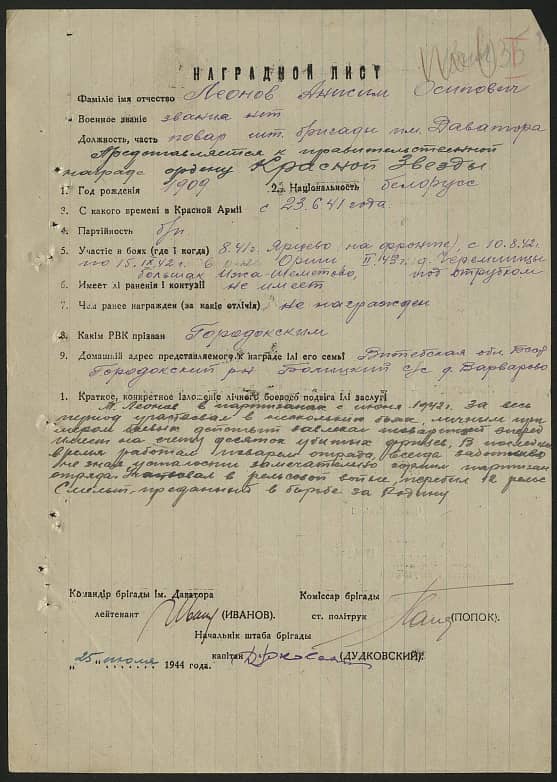 НАГРАДНОЙ ЛИСТ
Фаміліе імя отчество Леонов Анисим Осипович
Военное званіе звания нет
Должность, часть повар шт. бригади им. Даватора
Представляется к правительственной
награде ордену Красной Звезды
1. Год рождения 1909 2. Національность белорусс
3. С какого времені в Красной Арміі с 23.6 41 года
4. Партійность б/п
5. Участіе в боях (где і когда) 8.41г. Ярцево, на фронте), с 10.8.42г.
по 15.IX.42г. в Оршии, II.43г. д. Черемницы
большая Ижа-Шеметово,
6. Имеет лі раненія і контузіі не имеет
7. Чем ранее награжден (за какіе отлічія) не награжден
8. Какім РВК прізван Городокским
9. Домашній адрес представляемого к награде ілі его семьі Витебская обл. БССР
Городокский р-н с/с д. Варварово
1. Краткое, конкретное ізложеніе лічного боевого подвіга ілі заслугі
А. Леонов в партизанах с июня 1942г. За весь
период участвовал в нескольких боях, личным при
мером боевых действий завлекал товарищей вперед
имеет на счету десяток убитых фрицев. В последнее
время работал поваром отряда, всегда заботливо
не зная усталости замечательно кормил партизан
отряда. в рельсовой войне, перебил 12 рельс
Смелый, преданный в борьбе за Родину
Командір брігады ім. Даватора
лейтенант (ИВАНОВ).
Комісcар брігады
ст. політрук (ПОПОК).
Начальнік штаба брігады
капітан (ДУДКОВСКИЙ).
„25 июля 1944 года.